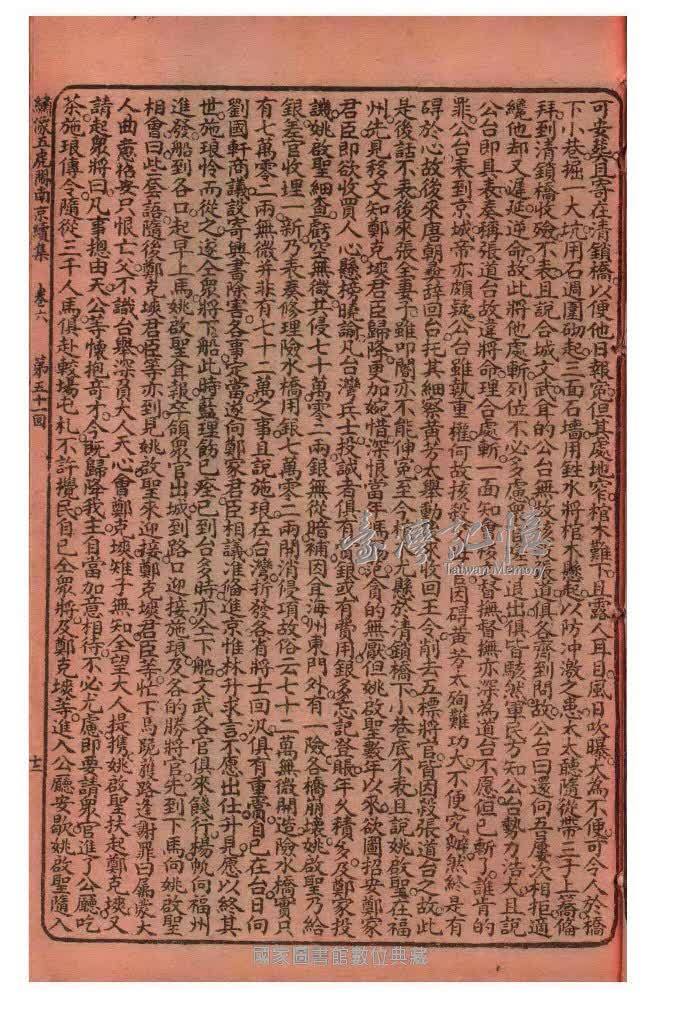 可安葬且寄在清鎖橋以便他日報冤但其處地窄棺木難下且露人耳目風日吹曝大為不便可令人於橋
下小巷掘一大坑用石週圍砌起三面石墻用鉎水將棺木懸起以防沖激之患太太聽隨從帶三子上
拜到清鎖橋收殮不表且說合城文武耳的公台無故張道俱各齊到問故公台曰還向吾屢次相拒適
纔他却又遲延逆命故此將他處斬列位不必多慮退出俱皆駭然軍民方知公台勢力浩大且說
公台即具表奏稱張道台故違將命理合處斬一面知會後督撫督撫亦深為道台不愿但已斬了誰肯的
罪公台表到京城帝亦頗疑公台雖執重權何故因碍黃芳太殉難功大不便究然終是有
碍於心故後來唐朝彝辭回台托其細察黃芳太舉動來收回王令削去五標將官皆因殺張道台之故此
是後話不表後來張全妻子雖叩閽亦不能伸冤至今棺尤懸於清鎖橋下小巷底不表且說姚啟聖在福
州先見移文知鄭克塽君臣歸降更加婉惜深恨當馮范貪的無厭但姚啟聖數年以來欲圖招安鄭家
君臣即欲收買人心懸榜曉諭凡台灣兵士投誠者俱有銀或有費用銀多忘記登賬年久積多及鄭家投
誠姚啟聖細查虧空無微共侵七十萬零二兩銀無從暗補因宜海州東門外有一險各橋崩壞姚啟聖乃給
銀差官收埋一新乃表奏修理險水橋用銀七萬零二兩開消侵項故俗云七十二萬無微開造險水橋實只
有七萬零二兩無微并非有七十二萬之事且說施琅在台灣折發各省將士回汛俱有重賞自已在台日向
劉國軒商議設寄興書除害各事定當遂向鄭家君臣相議准俻進京惟林升求言不愿出仕升見愿以終其
世施琅怜而從之遂仝眾將下船此時藍理飭已痊已到台多時亦仝下船文武各官俱來餞行揚帆向福州
進發船到各口起早上馬姚啟聖宜報卒領眾官出城到路口迎接施琅及各的勝將官先到下馬向姚啟聖
相會曰些屋語隨後鄭克塽君臣等亦到見姚啟聖來迎接鄭克塽君臣等忙下馬跪路逢謝罪曰屬蒙大
人曲格安只恨亡父不識台舉深負大人天心會鄭克塽雉子無知全望大人提携姚啟聖扶起鄭克塽又
請起眾將曰凡事摠由天公等懷抱奇才今既歸降我主自當加意相待不必尤慮即要請眾官進了公廳吃
茶施琅傳令隨從三千人馬俱赴較場屯札不許攪民自已仝眾將及鄭克塽等進入公廳安歇姚啟聖隨入
繡像五虎鬧南京續集 卷六 第五十一回 十三
臺灣記憶
Taiwan Memory
國家圖書館數位典藏